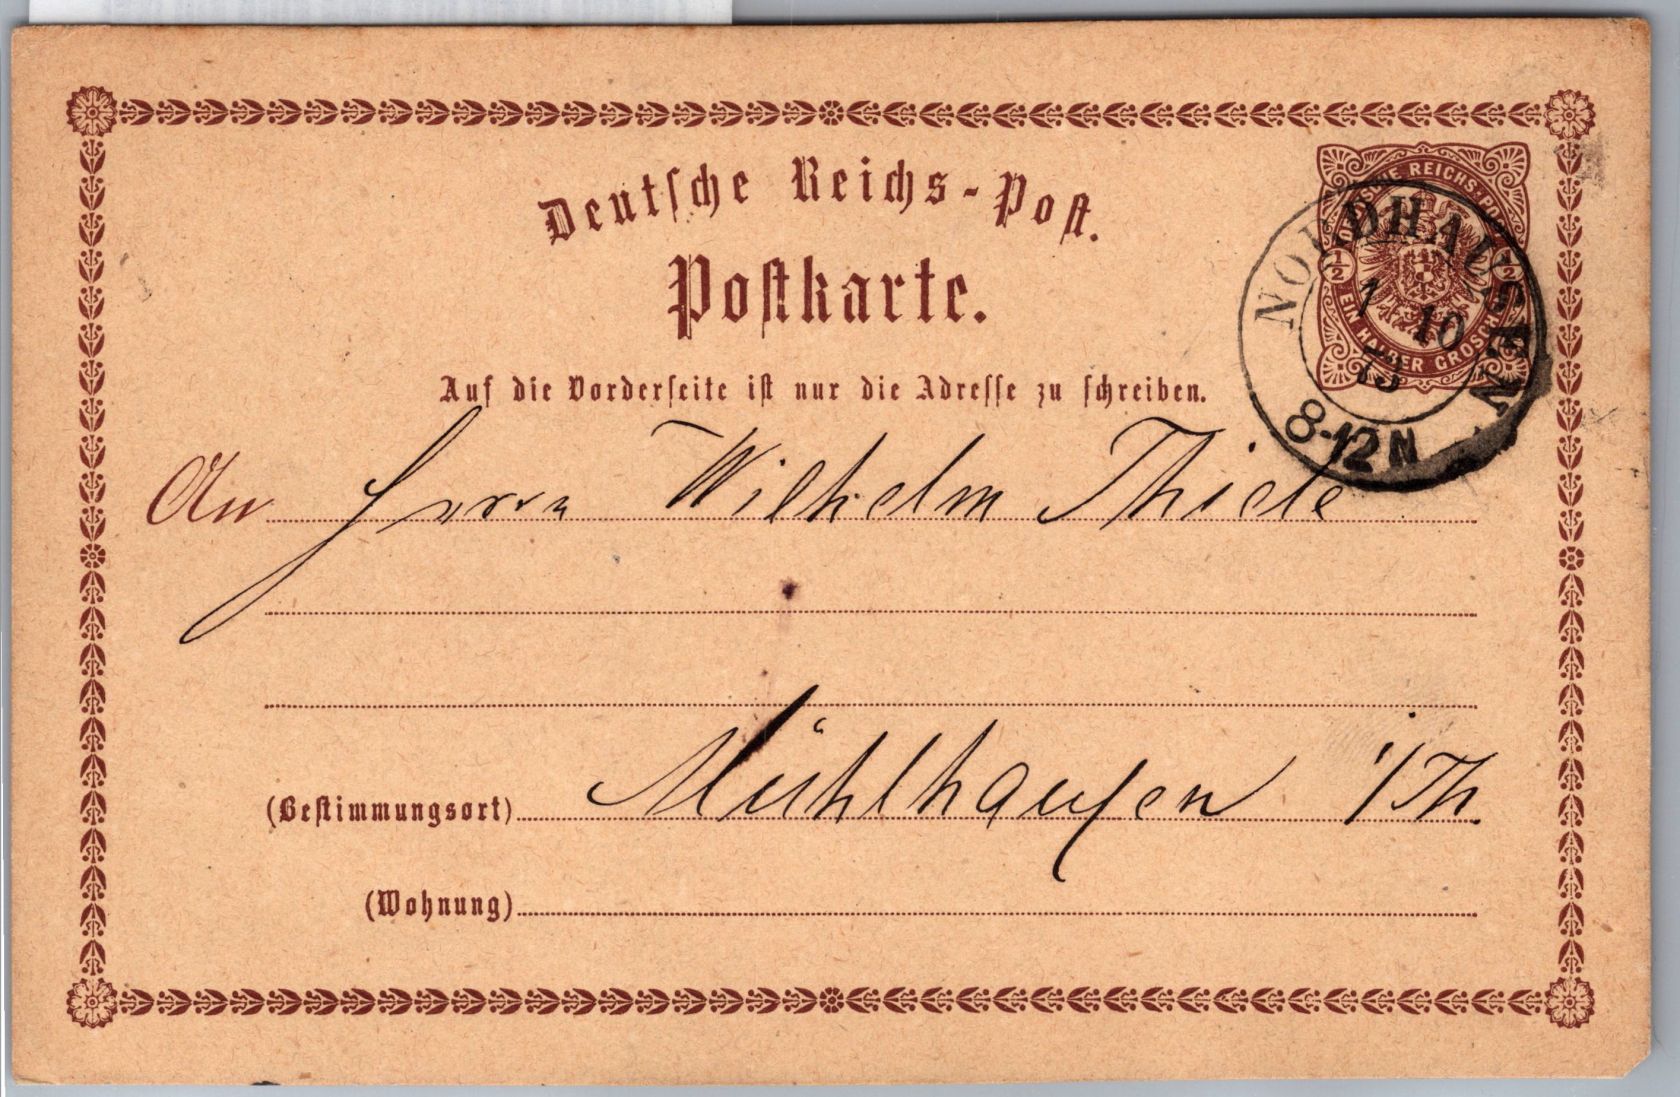 Deutsche Reichs-Post.
Postkarte.
DEUTSCHE REICHSPOST
1/2 1/2
EIN HALBER GROSCHEN
NORDHAUSEN
1 10
73
8-12 N
Auf die Vorderseite ist nur die Adresse zu schreiben.
An Herrn Wilhelm Thiele
(Bestimmungsort) Mühlhausen i/Th.
(Wohnung)